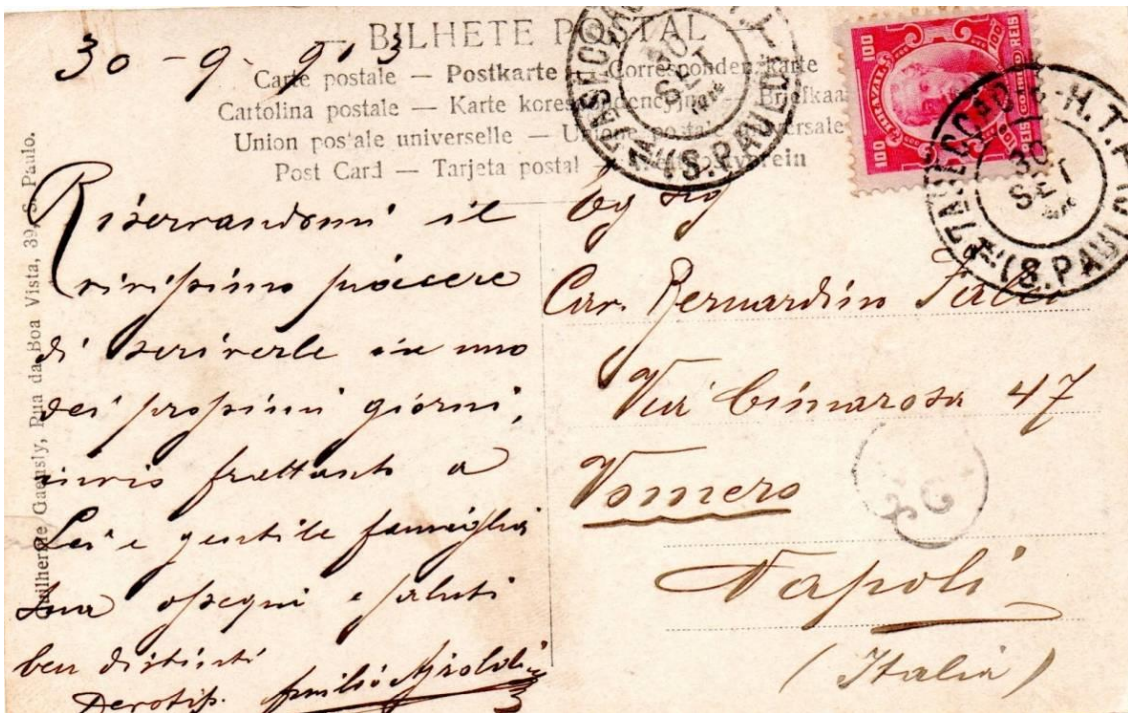 BILHETE POSTAL
30-9-913
Carte postale — Postkarte — Correspondenzkarte
Cartolina postale — Karte korespondencyjna — Briefkaa
Union postale universelle — Unione postale universale
Post Card — Tarjeta postal
Guilherme Gaensly, Rua da Boa Vista, 39, S. Paulo.
Riserrandomi il
vivissimo piacere
di scriverle in uno
dei prossimi giorni,
invio frattanto a
Lei e gentile famiglia
sua ossequi e saluti
ben distinti
Devotis. Emilio
Cav. Bernardino
Via Cimarosa 47
Vomero
Napoli
(Italia)
100 REIS 100
BRAZIL
100 REIS
30
SET
(S. PAULO)
30
SET
(S. PAULO)